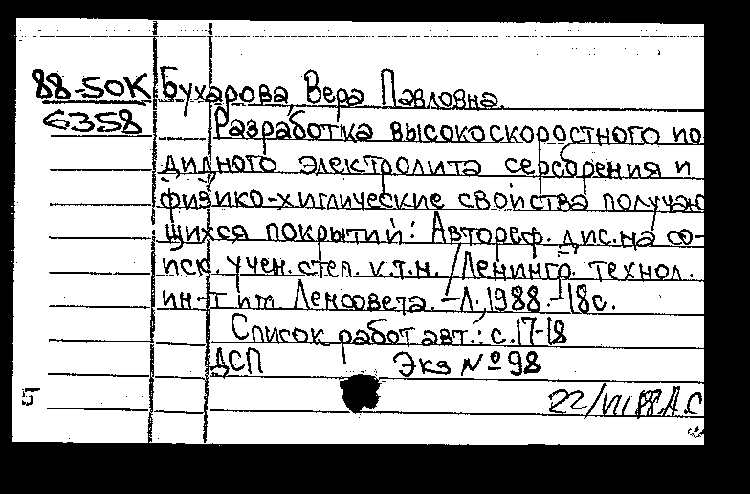 88-50К Бухарова, Вера Павловна.
6358 Разработка высокоскоростного по
дидного электролита серебрения и
физико-химические свойства получаю
щихся покрытий: Автореф. дис. на со-
иск. учен. степ. к.т.н. / Ленингр. технол.
ин-т им. Ленсовета. – Л., 1988. – 18 с.
Список работ авт.: с. 17-18
ДСП Экз № 98
5 22/VII 88 А.С